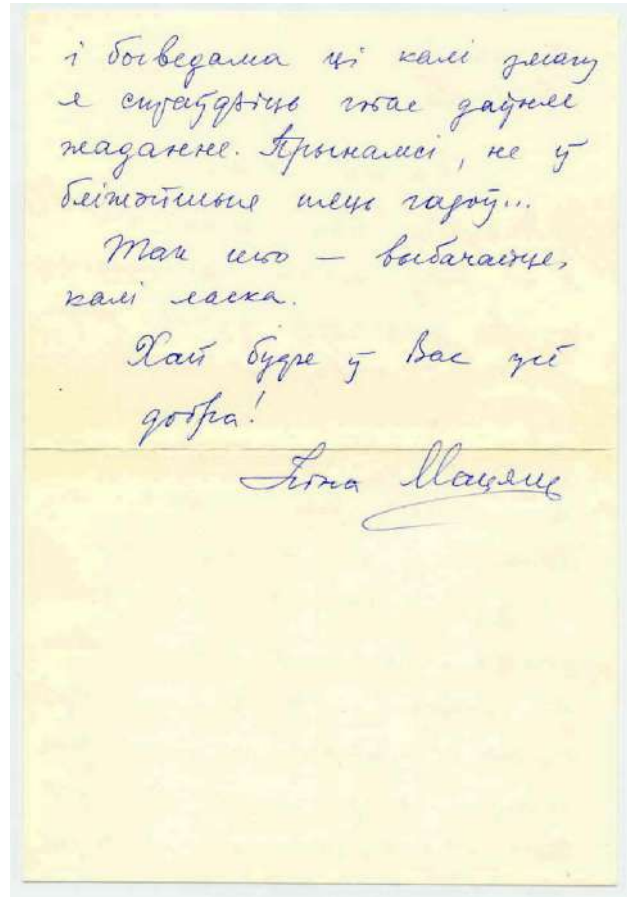 і бог ведама ці калі змагу
я спраўдзіць гэтае даўняе
жаданне. Прынамсі, не ў
бліжэйшыя пяць гадоў...
Так што — выбачайце,
калі ласка.
Хай будзе ў Вас усё
добра!
Ніна Мацяш